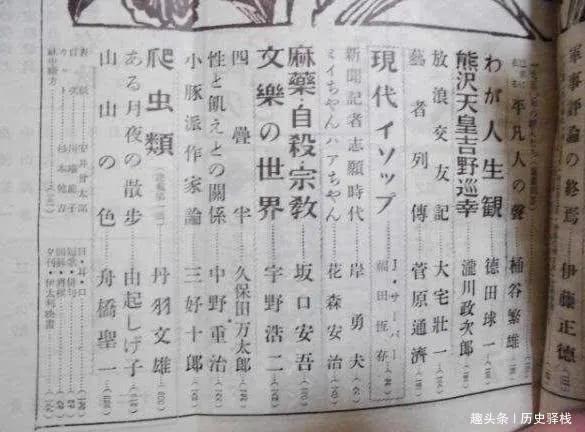 軍事評論の終焉 伊藤正德
平凡人の聲 桶谷繁雄
わが人生観 德田球一
熊沢天皇吉野巡幸 瀧川政次郎
放浪交友記 大宅壯一
藝者列傳 菅原通濟
現代イソップ J・サーバー 福田恆存
新聞記者志願時代 岸勇夫
ミイちゃんハアちゃん 花森安治
麻藥・自殺・宗教 坂口安吾
文樂の世界 宇野浩二
四疊半 久保田万太郎
性と飢えとの関係 中野重治
小豚派作家論 三好十郎
爬虫類 丹羽文雄
ある月夜の散步 由起しげ子
山山の色 舟橋聖一
趣头条 | 历史驿栈